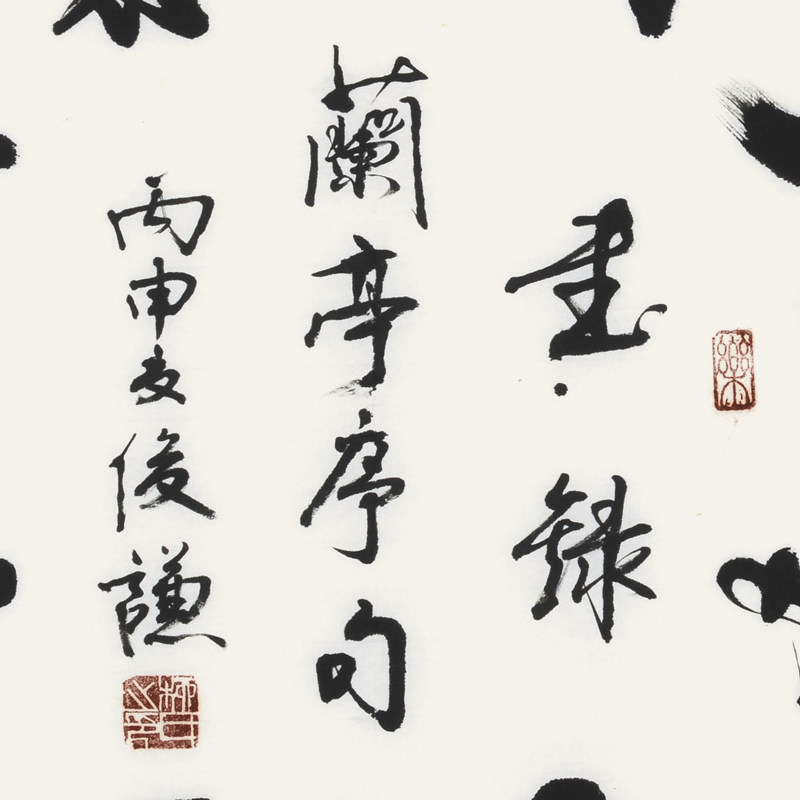 書錄
蘭亭序句
丙申夏俊謙